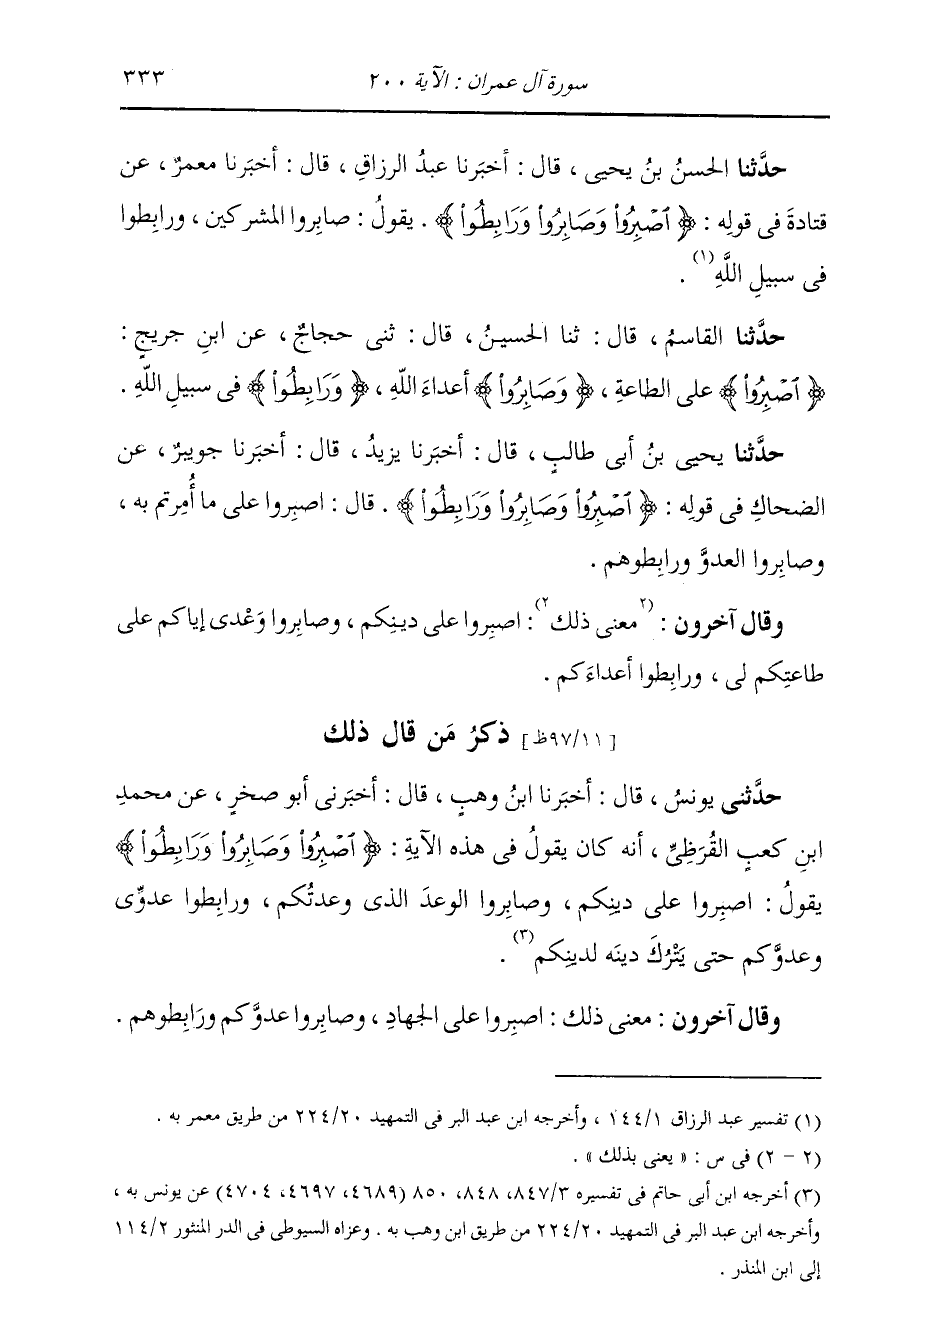 سورة آل عمران : الآية ٢٠٠ ٣٣٣
حدَّثنا الحسنُ بنُ يحيى ، قال : أخبَرنا عبدُ الرزاقِ ، قال : أخبَرنا معمرٌ ، عن
قتادةَ فى قولِه : ﴿ ٱصْبِرُواْ وَصَابِرُواْ وَرَابِطُواْ ﴾ . يقولُ : صابِروا المشركين ، ورابِطوا
فى سبيلِ اللَّهِ(١) .
حدَّثنا القاسمُ ، قال : ثنا الحسينُ ، قال : ثنى حجاجٌ ، عن ابنِ جريجٍ :
﴿ ٱصْبِرُواْ ﴾ على الطاعةِ ، ﴿ وَصَابِرُواْ ﴾ أعداءَ اللَّهِ ، ﴿ وَرَابِطُواْ ﴾ فى سبيلِ اللَّهِ .
حدَّثنا يحيى بنُ أبى طالبٍ ، قال : أخبَرنا يزيدُ ، قال : أخبَرنا جويبرٌ ، عن
الضحاكِ فى قولِه : ﴿ ٱصْبِرُواْ وَصَابِرُواْ وَرَابِطُواْ ﴾ . قال : اصبِروا على ما أُمِرتم به ،
وصابِروا العدوَّ ورابِطوهم .
وقال آخرون : (٢معنى ذلك٢) : اصبِروا على دينِكم ، وصابِروا وَعْدى إياكم على
طاعتِكم لى ، ورابِطوا أعداءَكم .
[٩٧/١١ظ] ذكرُ مَن قال ذلك
حدَّثنى يونسُ ، قال : أخبَرنا ابنُ وهبٍ ، قال : أخبَرنى أبو صخرٍ ، عن محمدِ
ابنِ كعبٍ القُرَظِىِّ ، أنه كان يقولُ فى هذه الآيةِ : ﴿ ٱصْبِرُواْ وَصَابِرُواْ وَرَابِطُواْ ﴾
يقولُ : اصبِروا على دينِكم ، وصابِروا الوعدَ الذى وعدتُكم ، ورابِطوا عدوِّى
وعدوَّكم حتى يَتْرُكَ دينَه لدينِكم(٣) .
وقال آخرون : معنى ذلك : اصبِروا على الجهادِ ، وصابِروا عدوَّكم ورَابِطوهم .
(١) تفسير عبد الرزاق ١٤٤/١ ، وأخرجه ابن عبد البر فى التمهيد ٢٢٤/٢٠ من طريق معمر به .
(٢ - ٢) فى س : « يعنى بذلك » .
(٣) أخرجه ابن أبى حاتم فى تفسيره ٨٤٧/٣، ٨٤٨، ٨٥٠ (٤٦٨٩، ٤٦٩٧، ٤٧٠٤) عن يونس به ،
وأخرجه ابن عبد البر فى التمهيد ٢٢٤/٢٠ من طريق ابن وهب به . وعزاه السيوطى فى الدر المنثور ١١٤/٢
إلى ابن المنذر .